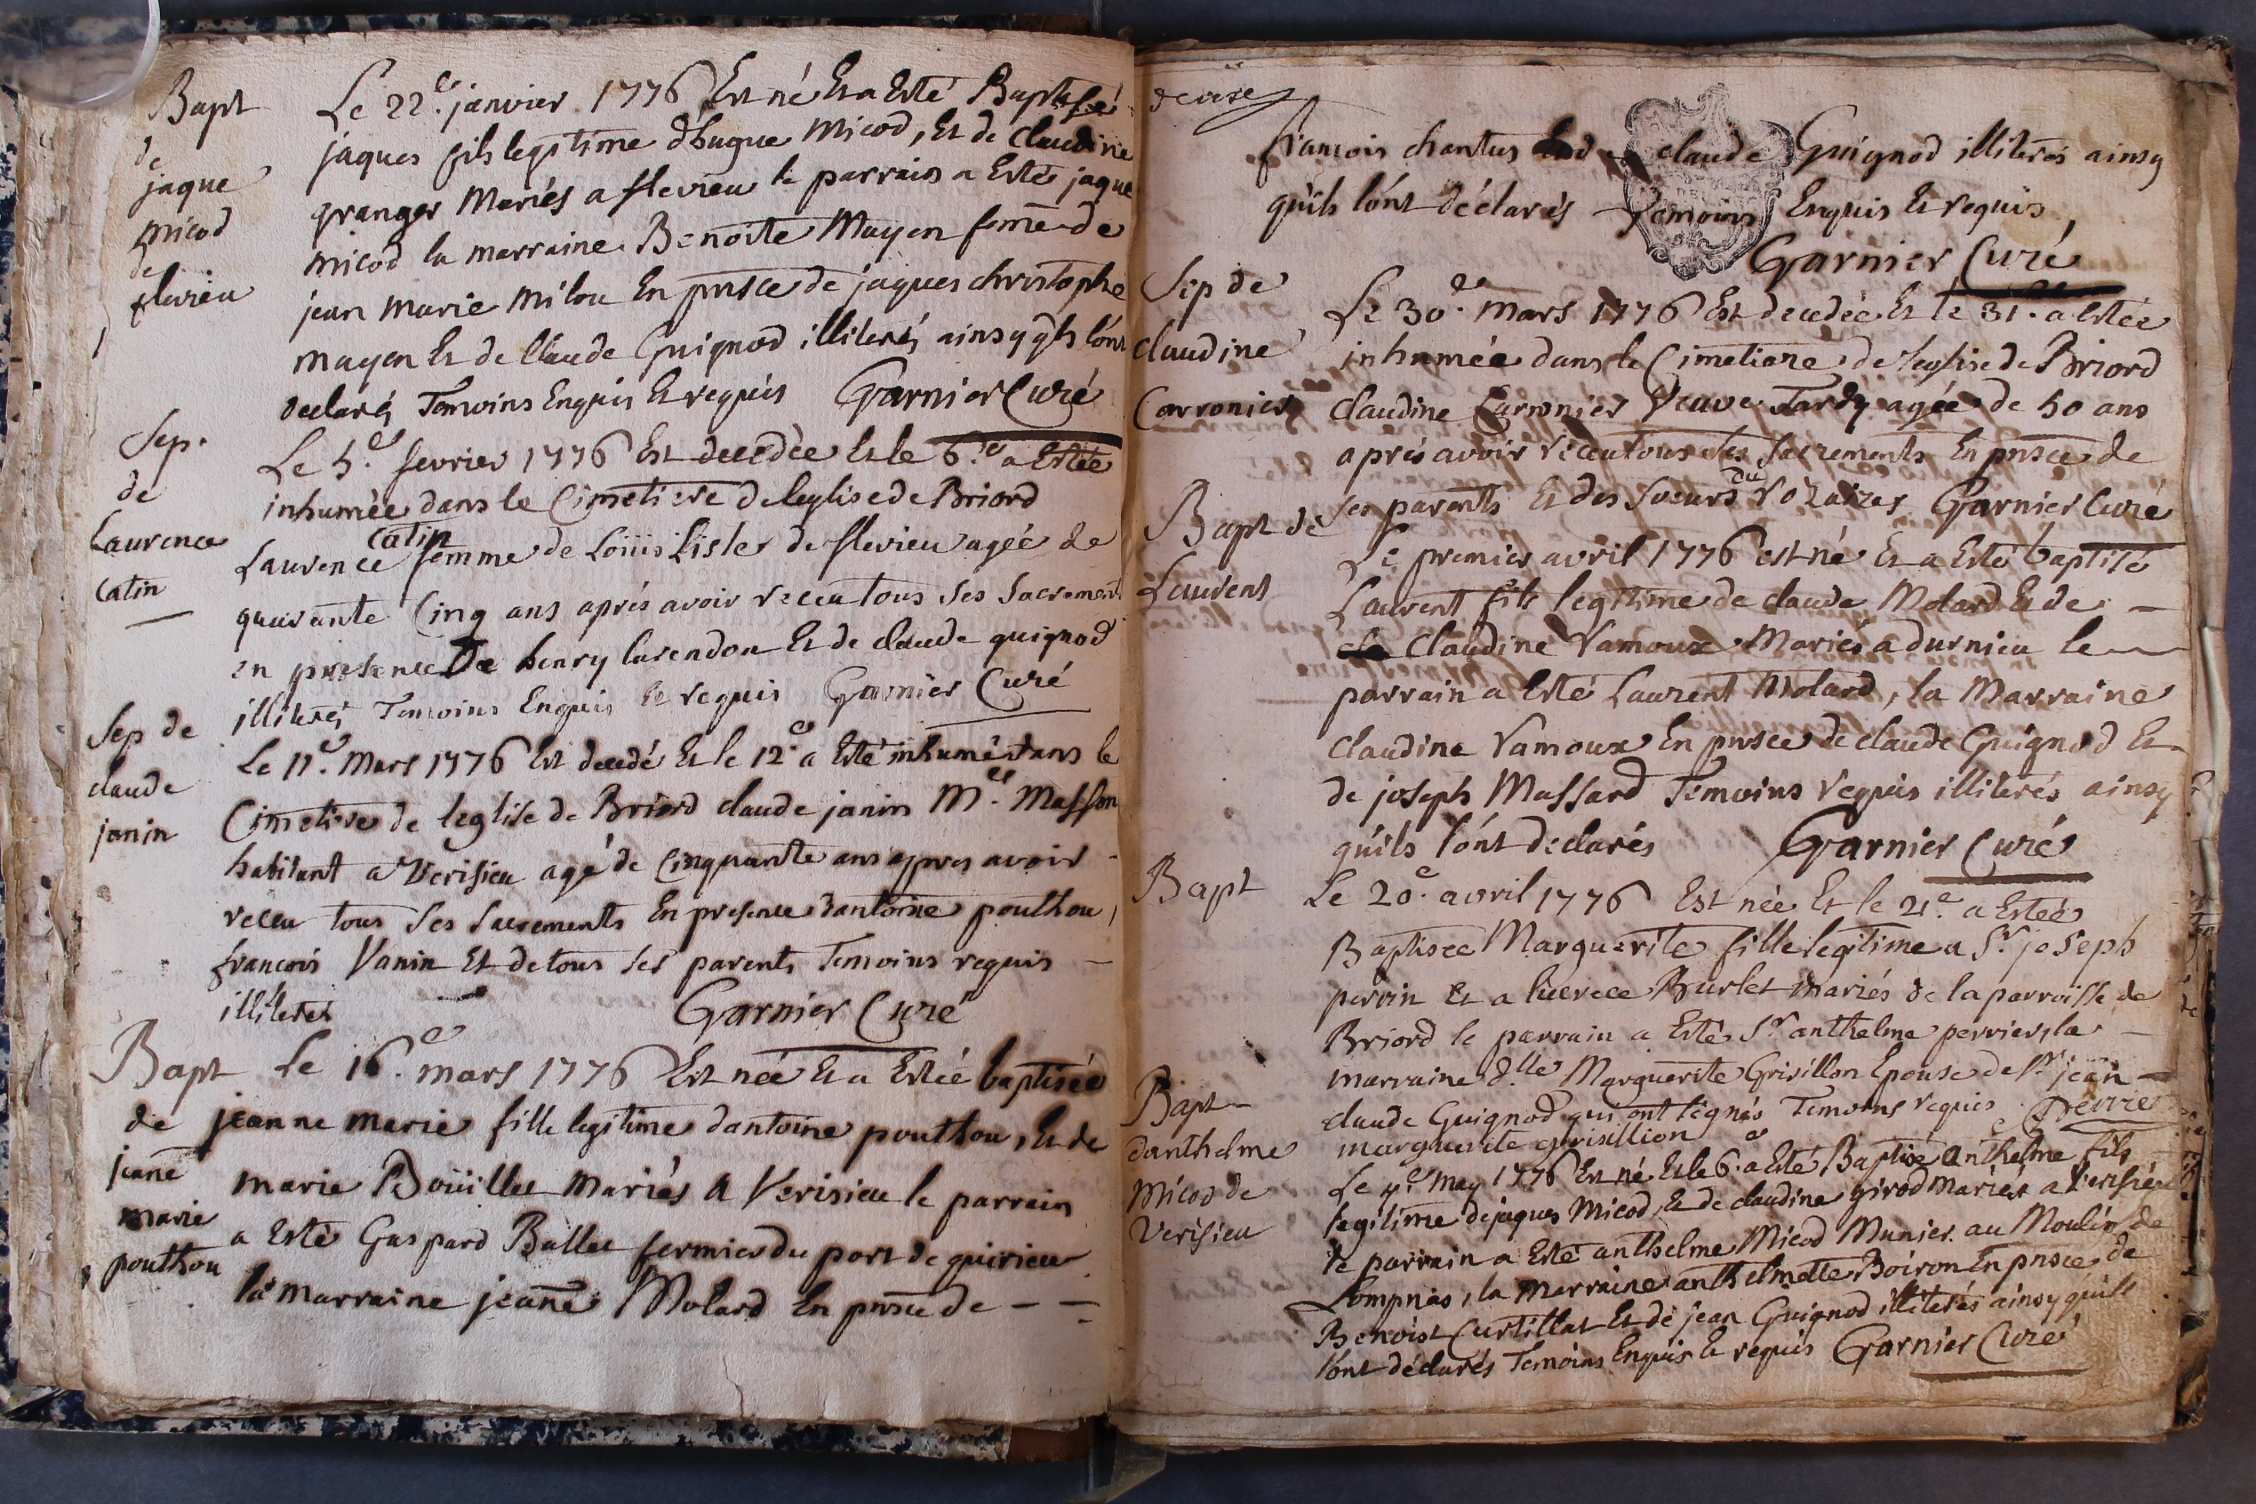 Bapt
de
jaque
micod
de
flevieu
Le 22.e janvier 1776 Est né Et a Esté Baptisé
jaques fils legitime d'hugue Micod, Et de Claudine
granger Mariés a flevieu le parrain a Esté jaque
micod la marraine Benoite Mayen feme de
jean marie milou En pnsce de jaques christophe
mayen Et de Claude Guignod illiterés ainsy qls l'ónt
declarés Temoins Enquis Et requis Garnier Curé
Sep.
de
Laurence
Catin
Le 5.e fevrier 1776 Est decedée Et le 6.e a Estée
inhumée dans le Cimetiere de leglise de Briord
catin
Laurence femme de Loüis Lisler de flevieu agée de
quarante Cinq ans aprés avoir receu tous ses Sacrement
en presence De henry larendon Et de claude guignod
illiterés Temoins Enquis Et requis Garnier Curé
Sep de
claude
janin
Le 11.e Mars 1776 Est decedé Et le 12.e a Esté inhumé dans le
Cimetiere de leglise de Briord claude janin M.e Masson
habitant a Verisieu agé de Cinquante ans apres avoir
receu tous Ses Sacrements En presence dantoine pouthou,
francois Vanin Et de tous ses parents Temoins requis
illiterés Garnier Curé
Bapt
de
jeane
marie
pouthou
Le 16.e mars 1776 Est née Et a Estée baptisée
jeanne marie fille legitime dantoine pouthou, Et de
marie Boüillet mariés a Verisieu le parrain
a Esté Gaspard Ballet fermier du port de quirieu
la marraine jeane Molard En pnsce de
francois chantus claude Guignod illiterés ainsy
quils l'ónt déclarés Temoins Enquis Et requis,
Garnier Curé
Sep de
claudine
Carronier
Le 30.e mars 1776 Est decedée Et le 31.e a Estée
inhumée dans le Cimetiere de leglise de Briord
claudine Carronier Veuve Tardy agée de 50 ans
aprés avoir receu tous Ses Sacrements En pnsce de
ses parents Et des Soeurs du rozaires Garnier Curé
Bapt de
Laurent
Le premier avril 1776 est né Et a Esté baptisé
Laurent fils legitime de claude Molard Et de
Claudine Vamoux Mariés a durnieu le
parrain a Esté Laurent Molard, la Marraine
claudine Vamoux En pnsce de claude Guignod Et
de joseph Massard Temoins requis illiterés ainsy
qu'ils l'ónt declarés Garnier Curé
Bapt
Le 20.e avril 1776 Est née Et le 21.e a Estée
Baptisée Marguerite fille legitime a Sr joseph
perrin Et a lucrece Burlet mariés de la parroisse de
Briord le parrain a Esté Sr anthelme perrier, la
marraine d.lle Marguerite Grisillon Epouse de Sr jean
claude Guignod qui ont signés Temoins requis Perrier
marguerite grisillion
Bapt
danthelme
Micod de
Verisieu
Le May 1776 Est né Et le 6.e a Esté Baptisé Anthelme fils
legitime de jaques Micod, Et de claudine girod Mariés a Verisieu
le parrain a Esté anthelme Micod Munier au Moulin de
Lompnas, la Marraine anthelmette Boiron En pnsce de
Benoist Curtillat Et de jean Guignod illiterés ainsy quils
l'ónt déclarés Temoins Enquis Et requis Garnier Curé